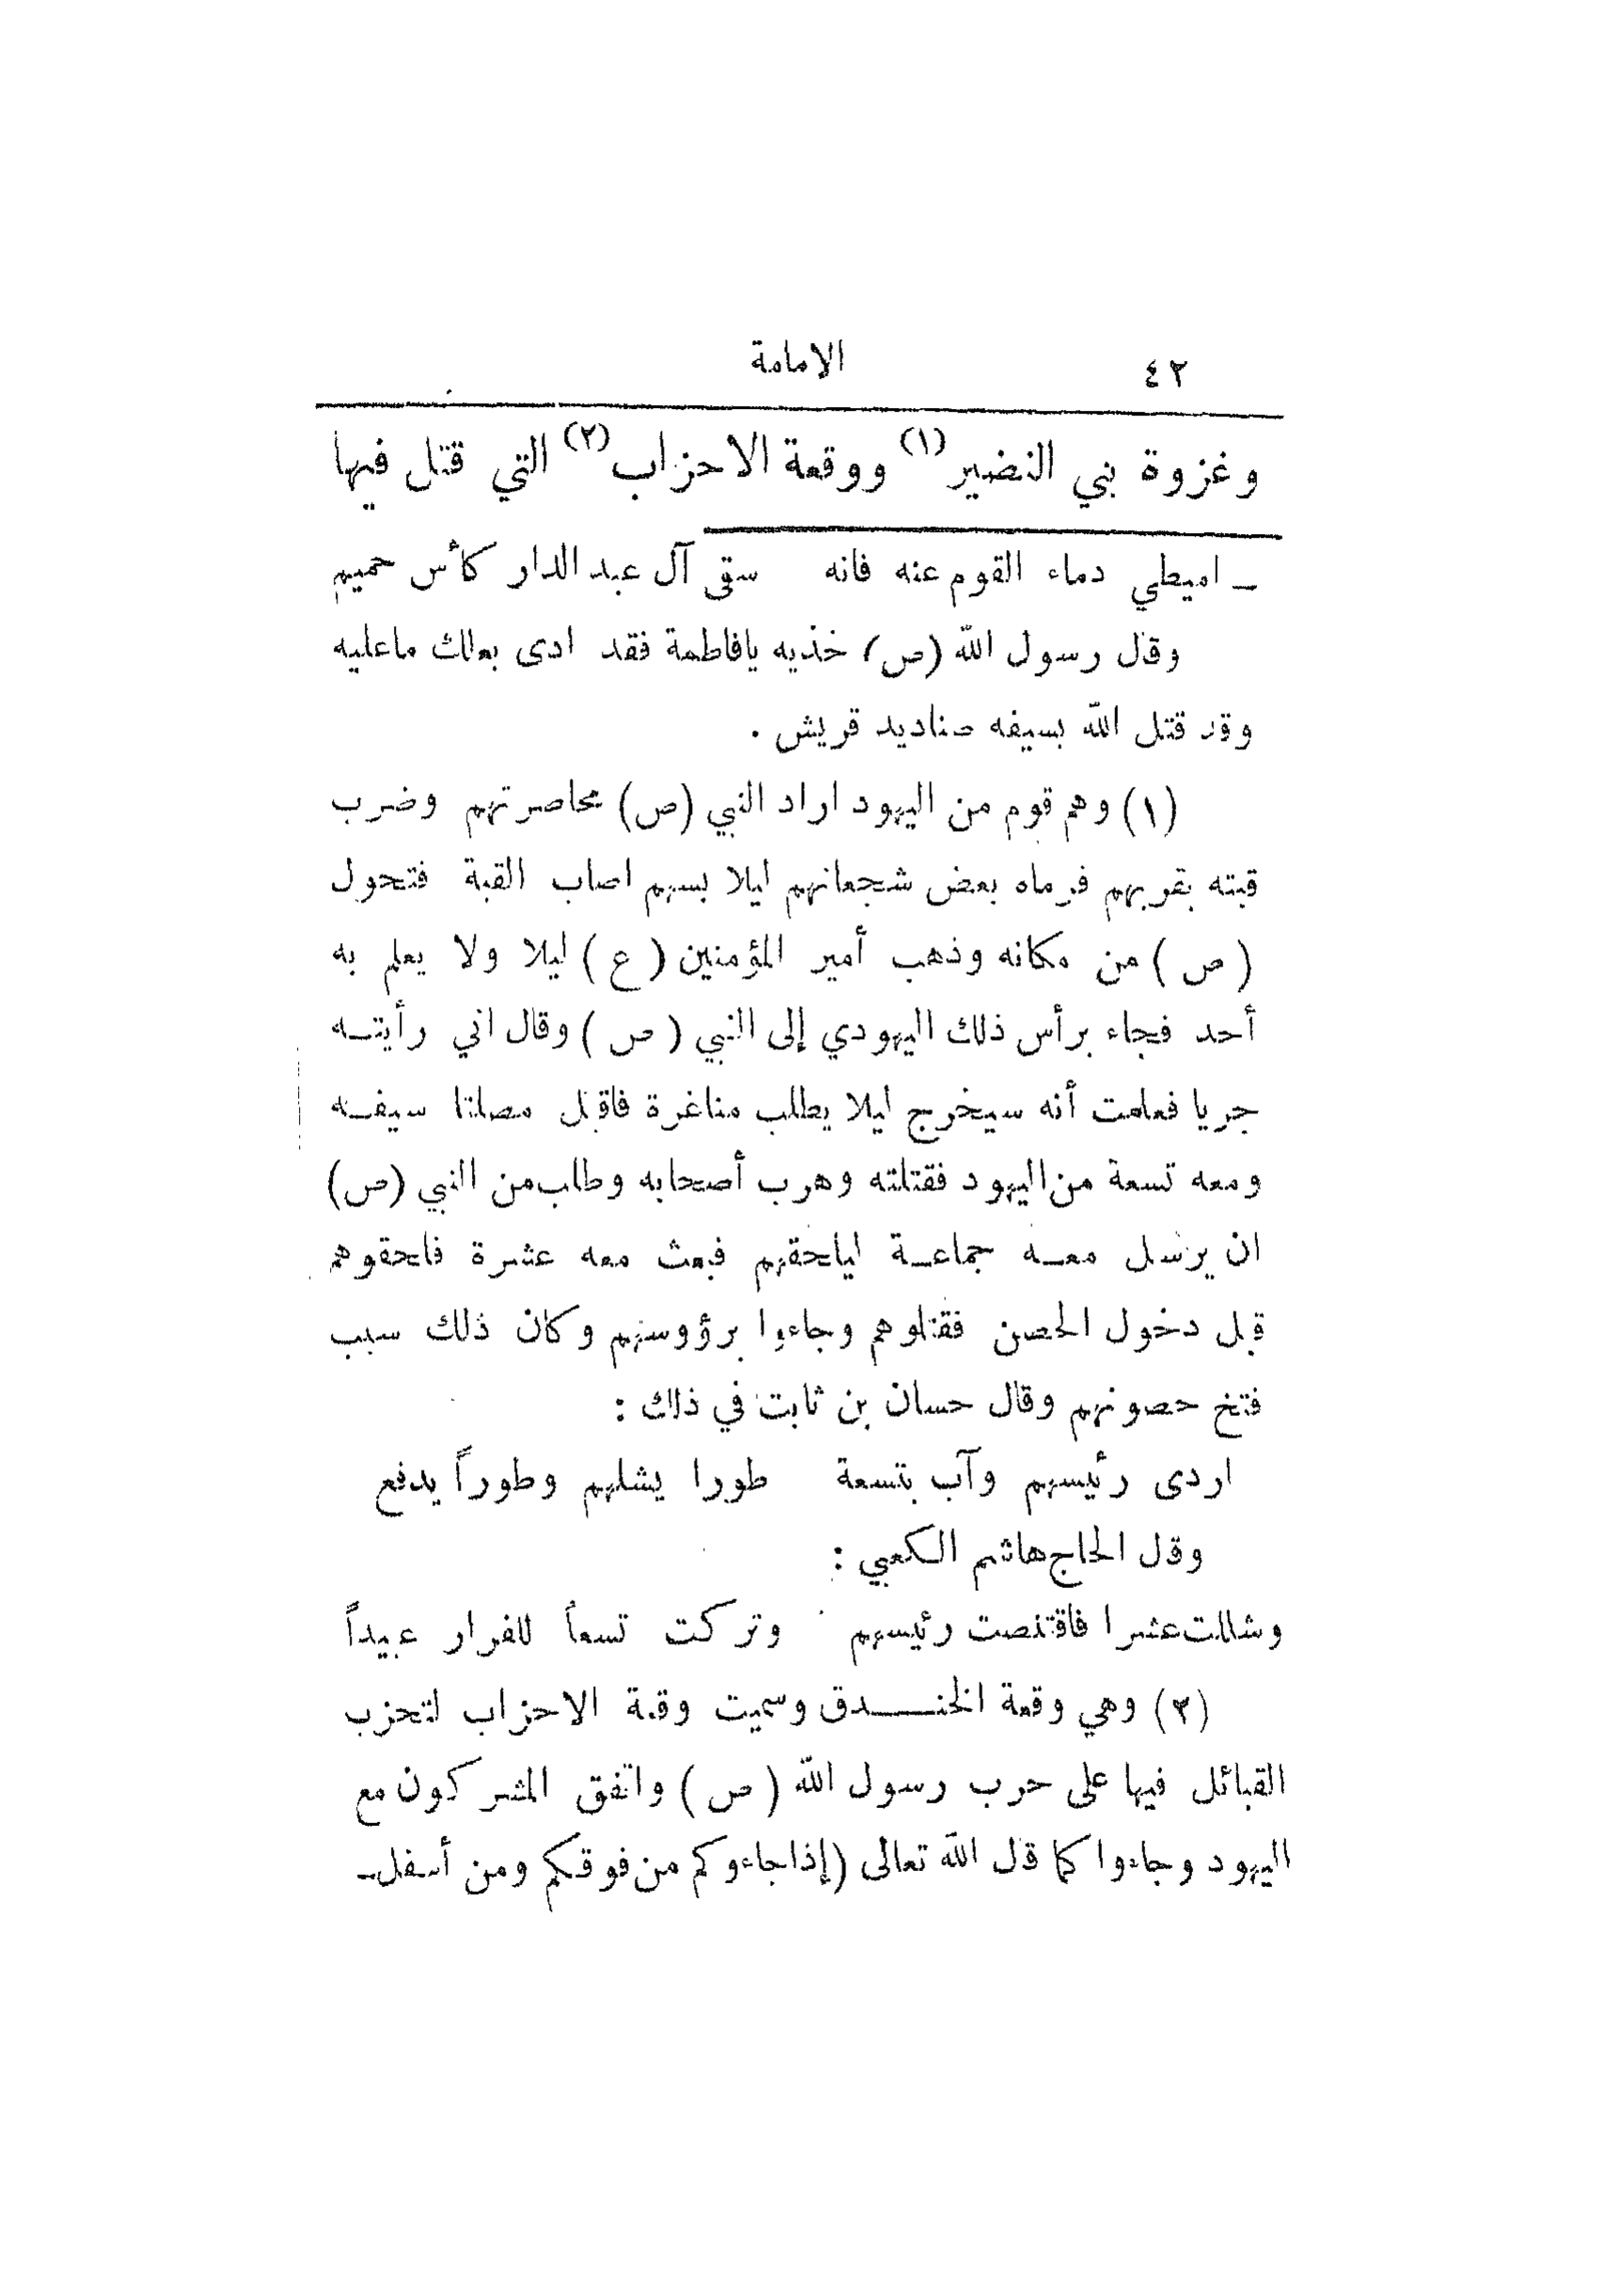 ٤٢ الامامة
وغزوة بني النضير(١) ووقعة الاحزاب(٢) التي قتل فيها
ـ اميطي دماء القوم عنه فانه سقى آل عبد الدار كأس حميم
وقال رسول الله (ص) خذيه يافاطمة فقد ادى بعلك ماعليه
وقد قتل الله بسيفه صناديد قريش .
(١) وهم قوم من اليهود اراد النبي (ص) محاصرتهم وضرب
قبته بقربهم فرماه بعض شجعانهم ليلا بسهم اصاب القبة فتحول
( ص ) من مكانه وذهب أمير المؤمنين ( ع ) ليلا ولا يعلم به
أحد فجاء برأس ذلك اليهودي إلى النبي ( ص ) وقال اني رأيتـه
جريا فعلمت أنه سيخرج ليلا يطلب مناغرة فاقبل مصلتا سيفـه
ومعه تسعة من اليهود فقتلته وهرب أصحابه وطلب من النبي (ص)
ان يرسل معـه جماعـة ليلحقهم فبعث معه عشرة فلحقوهم
قبل دخول الحصن فقتلوهم وجاءوا برؤوسهم وكان ذلك سبب
فتح حصونهم وقال حسان بن ثابت في ذلك :
اردى رئيسهم وآب بتسعة طورا يشلهم وطوراً يدفع
وقال الحاج هاشم الكعبي :
وشللت عشرا فاقتنصت رئيسهم وتركت تسعاً للفرار عبيداً
(٢) وهي وقعة الخنـدق وسميت وقعة الاحزاب لتحزب
القبائل فيها على حرب رسول الله ( ص ) واتفق المشركون مع
اليهود وجاءوا كما قال الله تعالى (إذا جاءوكم من فوقكم ومن أسفل ـ